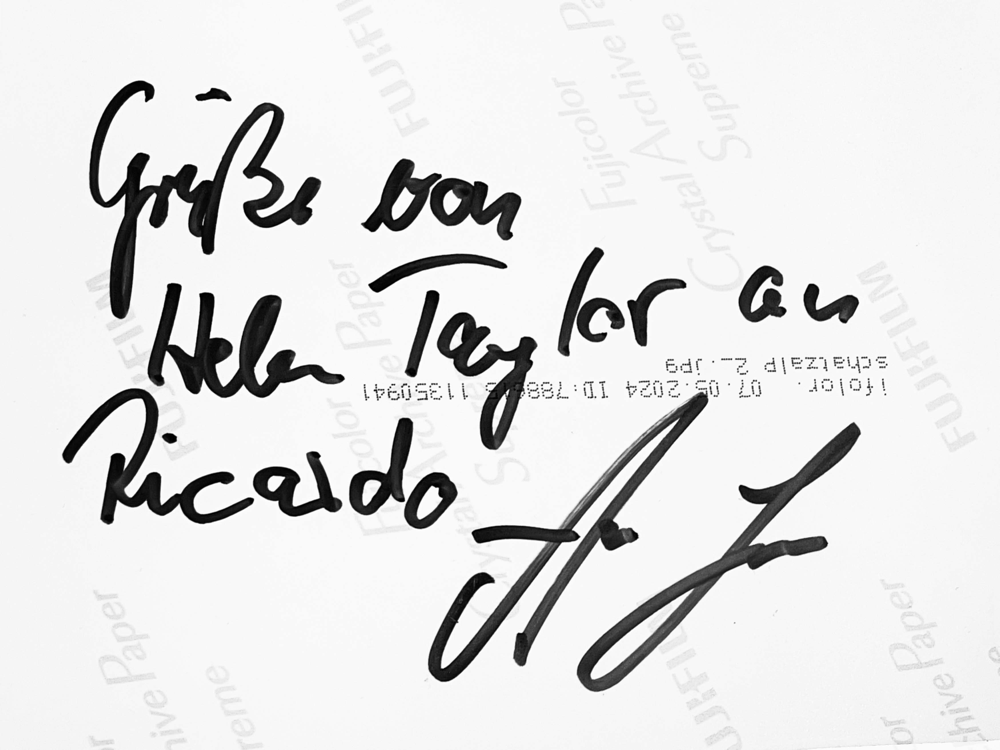 Grüße von
Helen Taylor an
Ricardo
ifolor. 07.05.2024 ID:788615 11350941
schatzalp 2_.jpg
FUJIFILM
Fujicolor
Crystal Archive Paper
Supreme
FUJIFILM
Fujicolor
Crystal Archive Paper
Supreme
FUJIFILM
FUJIFILM
Archive Paper
Supreme
Archive Paper